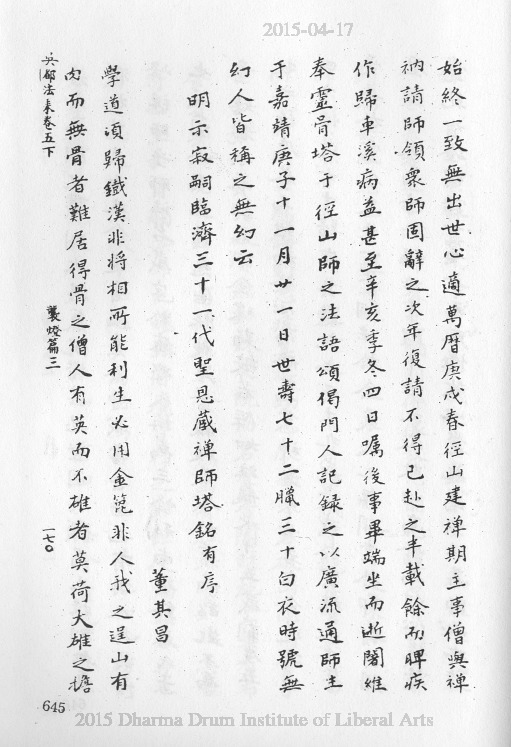 2015-04-17
始終一致無出世心適萬曆庚戌春徑山建禪期主事僧與禪
衲請師領衆師固辭之次年復請不得已赴之半載餘而脾疾
作歸車溪病益甚至辛亥季冬四日囑後事畢端坐而逝闍維
奉靈骨塔于徑山師之法語頌偈門人記録之以廣流通師生
于嘉靖庚子十一月廿一日世壽七十二臘三十白衣時號無
幻人皆稱之無幻云
明示寂嗣臨濟三十一代聖恩藏禅師塔銘有序
董其昌
學道須歸鐵漢非將相所能利生必用金篦非人我之逞山有
肉而無骨者難居得骨之僧人有英而不雄者莫荷大雄之擔
吴都法乘卷五下
襲燈篇三
一七〇
645
2015 Dharma Drum Institute of Liberal Arts